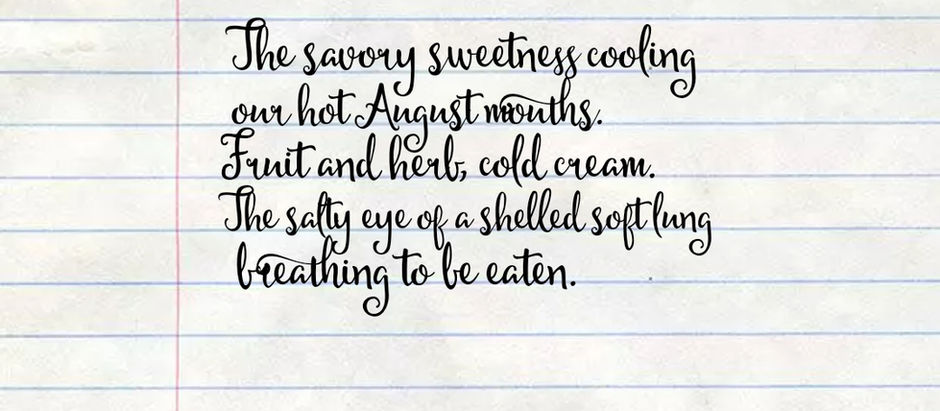 The savory sweetness cooling
our hot August mouths.
Fruit and herb, cold cream.
The salty eye of a shelled soft lung
breathing to be eaten.